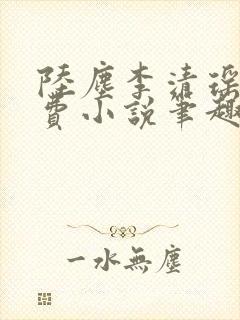 陸塵李清瑤
費小說筆趣
一水無塵